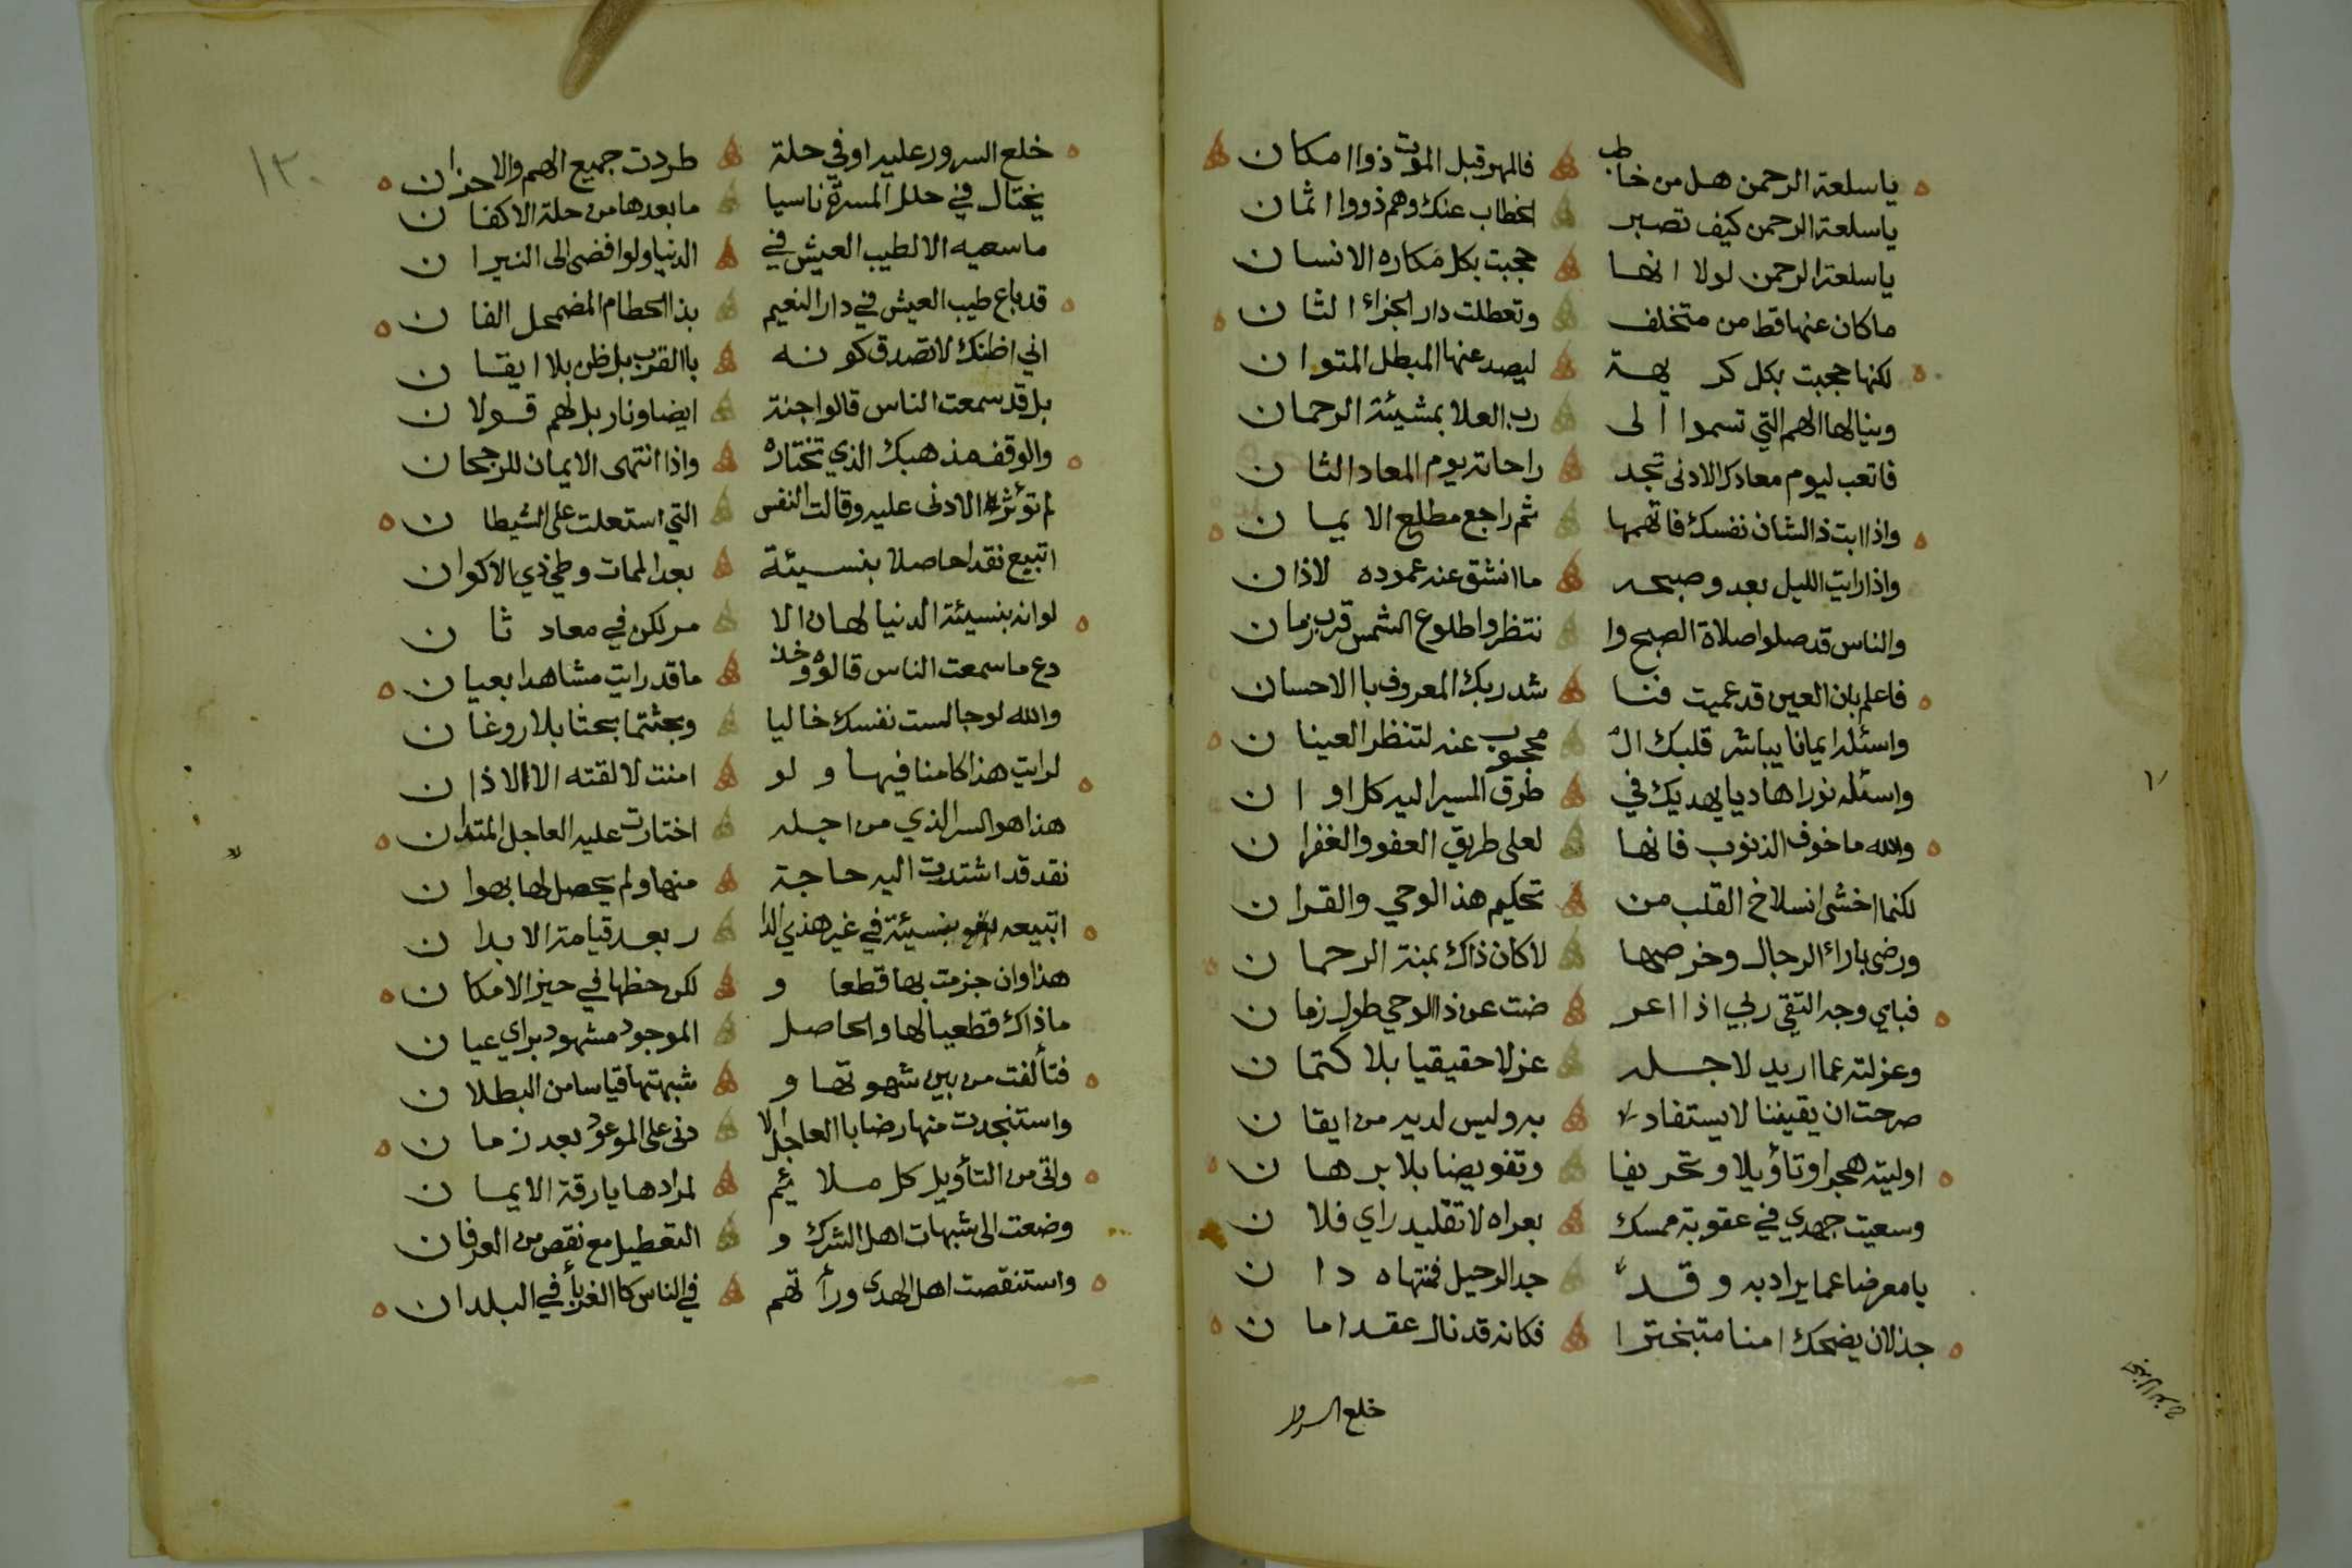 ياسلعة الرحمن هل من خاطب فالمهر قبل الموت ذواامكان
ياسلعة الرحمن كيف تصبر الخطاب عنك وهم ذووا اثمان
ياسلعة الرحمن لولا انها حجبت بكل مكاره الانسان
ماكان عنها قط من متخلف وتعطلت دار الجزاء الثان
لكنها حجبت بكل كريهة ليصد عنها المبطل المتوان
وينالها الهمم التي تسموا الى رب العلا بمشيئة الرحمان
فاتعب ليوم معادك الادنى تجد راحاته يوم المعاد الثان
واذا ابت ذالشان نفسك فاتهمها ثم راجع مطلع الايمان
واذا رايت الليل بعد وصبحه ماانشق عنه عموده لاذان
والناس قد صلوا صلاة الصبح وا نتظروا طلوع الشمس قرب زمان
فاعلم بان العين قد عميت فنا شد ربك المعروف باالاحسان
واسئله ايمانا يباشر قلبك ال محجوب عنه لتنظر العينان
واسئله نورا هاديا يهديك في طرق المسير اليه كل اوان
والله ماخوف الذنوب فانها لعلى طريق العفو والغفران
لكنما اخشى انسلاخ القلب من تحكيم هذالوحي والقران
ورضى باراء الرجال وخرصها لاكان ذاك بمنة الرحمان
فباي وجه التقي ربي اذا اعر ضت عن ذاالوحي طول زمان
وعزلته عما اريد لاجله عزلا حقيقيا بلا كتمان
صرحت ان يقيننا لايستفاد به وليس لديه من ايقان
اوليته هجرا وتأويلا وتحريفا وتفويضا بلا برهان
وسعيت جهدي في عقوبة ممسك بعراه لا تقليد راي فلان
يامعرضا عما يراد به وقد جد الرحيل فمنتهاه دان
جذلان يضحك امنا متبخترا فكانه قد نال عقد امان
خلع السرور
١٣٠
خلع السرور عليه اوفي حلة طردت جميع الهم والاحزان
يختال في حلل المسرة ناسيا مابعدها من حلة الاكفان
ماسعيه الا لطيب العيش في الدنيا ولو افضى الى النيران
قد باع طيب العيش في دار النعيم بذا الحطام المضمحل الفان
اني اظنك لاتصدق كونه باالقرب بل ظن بلا ايقان
بل قد سمعت الناس قالوا جنة ايضا ونار بل لهم قولان
والوقف مذهبك الذي تختاره واذا انتهى الايمان للرجحان
لم تؤثر الادنى عليه وقالت النفس التي استعلت على الشيطان
اتبيع نقدا حاصلا بنسيئة بعد الممات وطي ذي الاكوان
لوانه بنسيئة الدنيا لهان الا مر لكن في معاد ثان
دع ماسمعت الناس قالوه وخذ ماقد رايت مشاهدا بعيان
والله لو جالست نفسك خاليا وبحثتما بحثا بلا روغان
لرايت هذا كامنا فيها ولو امنت لالقته الا الاذان
هذا هو السر الذي من اجله اختارت عليه العاجل المتدان
نقد قد اشتدت اليه حاجة منها ولم يحصل لها بهوان
اتبيعه بنسيئة في غير هذي الدا ر بعد قيامة الابدان
هذا وان جزمت بها قطعا و لكن حظها في حيز الامكان
ماذاك قطعيا لها والحاصل الموجود مشهود براي عيان
فتألفت من بين شهوتها و شبهتها قياسا من البطلان
واستنجدت منها رضا باالعاجل الا دنى على الموعود بعد زمان
واتى من التأويل كل ملايئم لمرادها يارقة الايمان
وضعت الى شبهات اهل الشرك و التعطيل مع نقص من العرفان
واستنقصت اهل الهدى ورأتهم في الناس كاالغربأ في البلدان